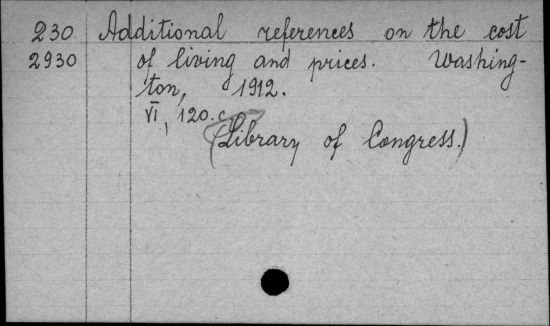 230 Additional references on the cost
2930 of living and prices. Washing-
ton, 1912.
VI, 120.c.
(Library of Congress.)